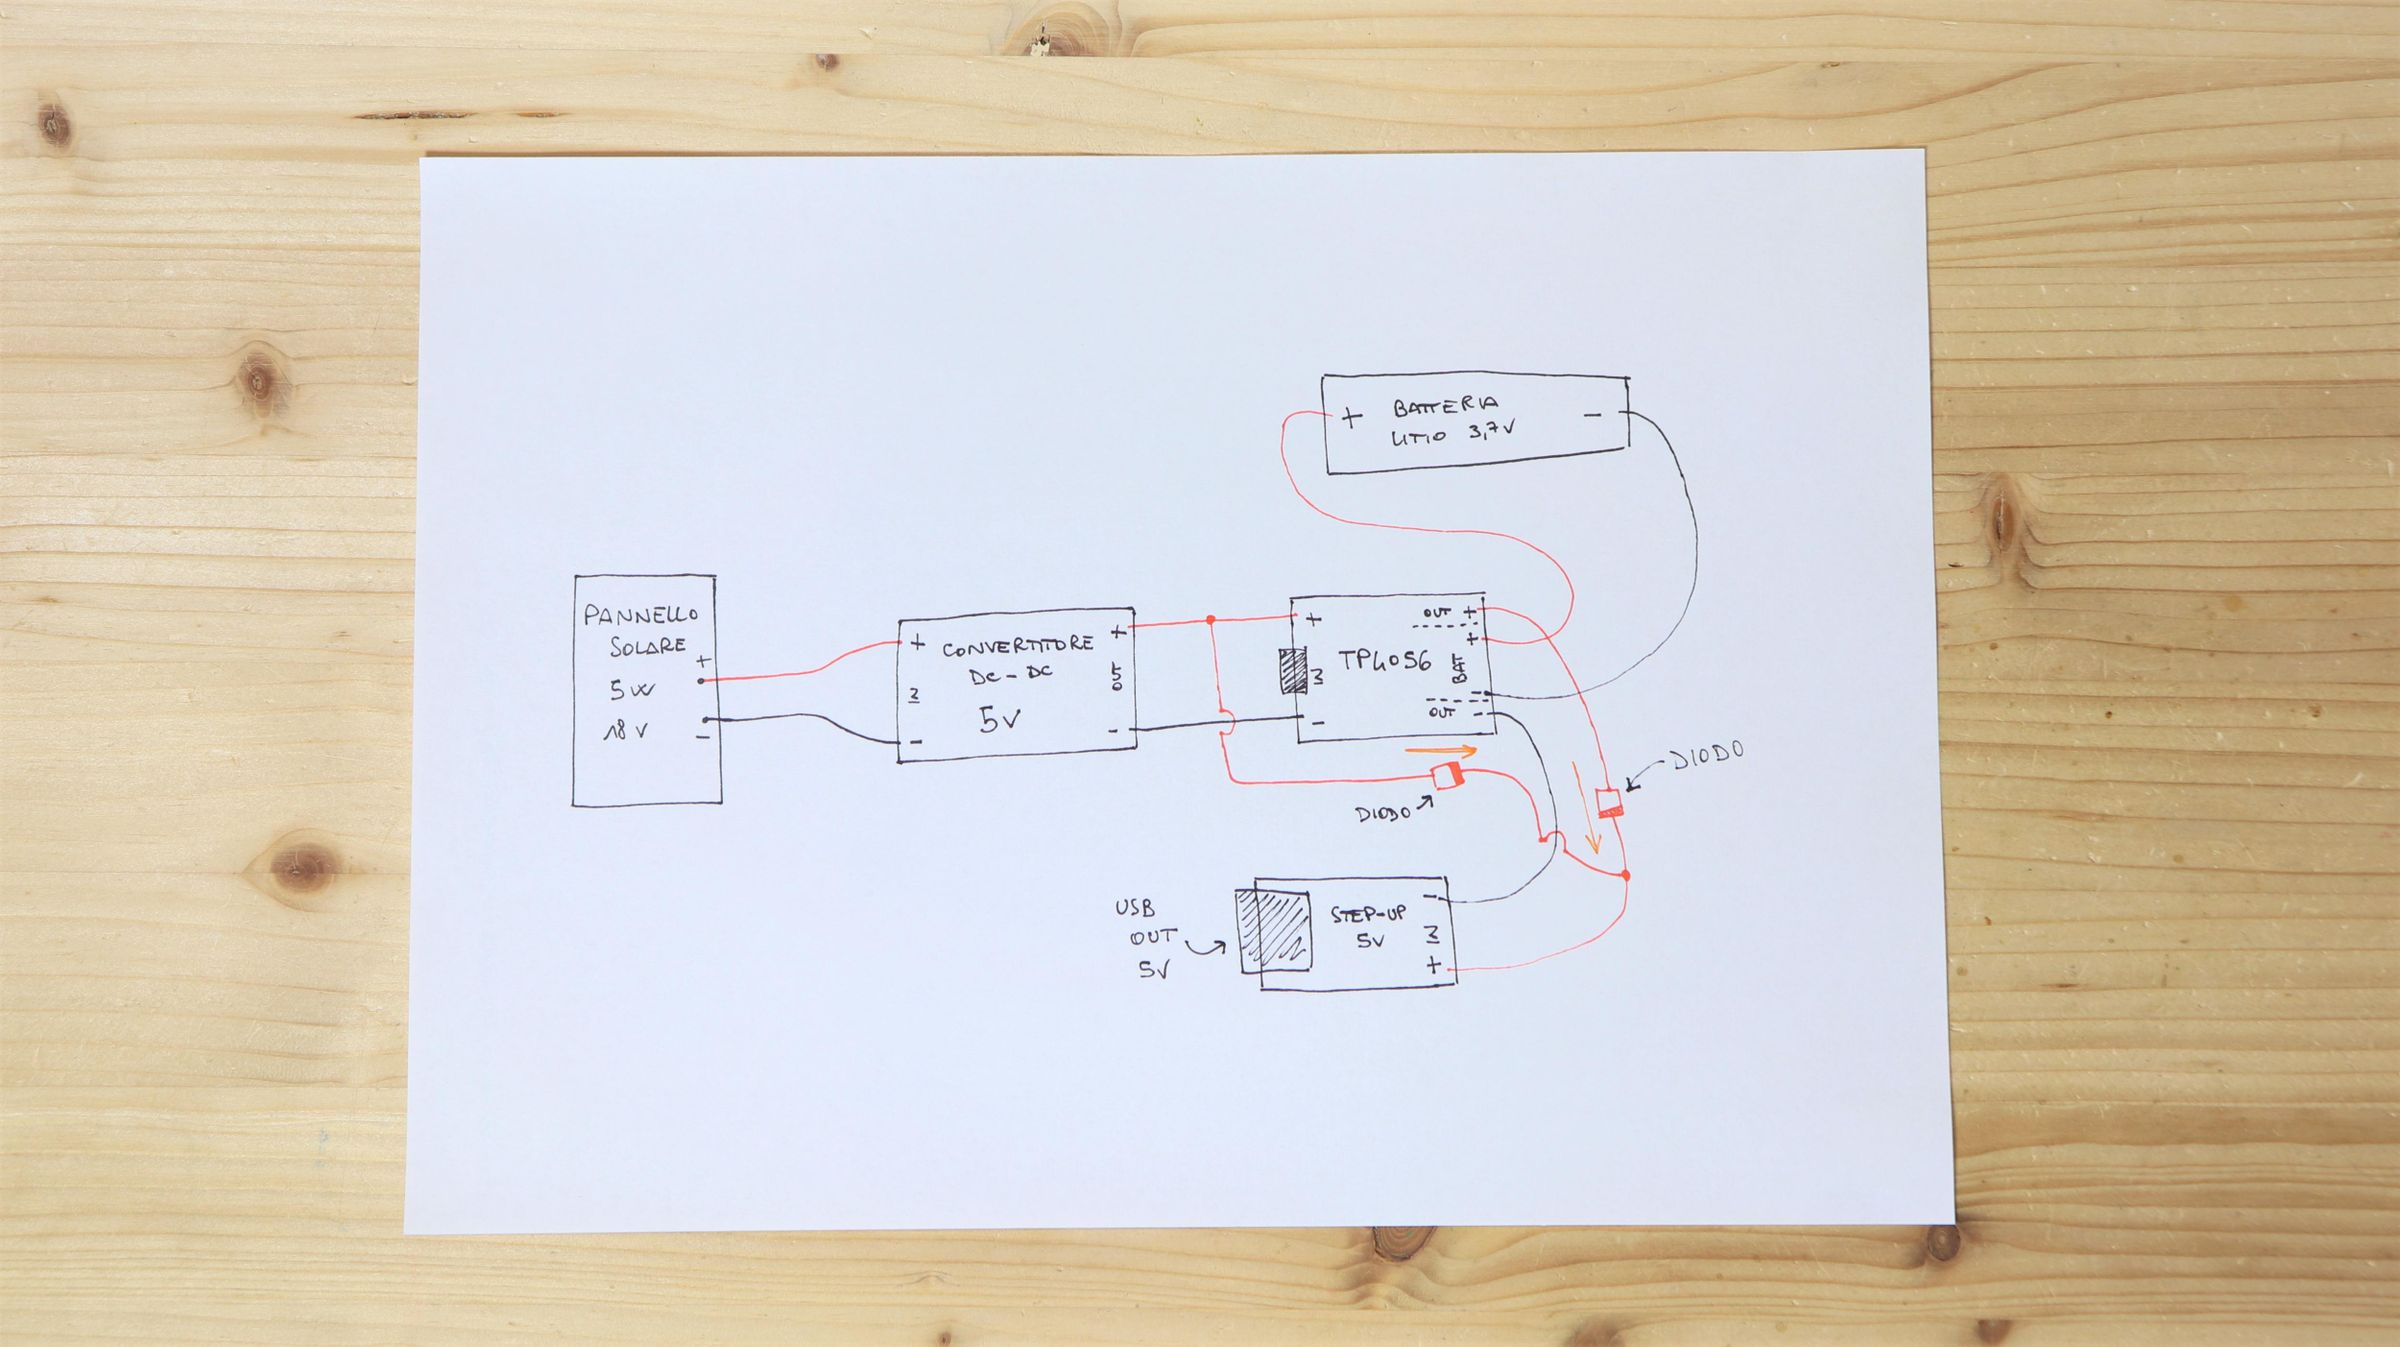 BATTERIA
LITIO 3,7V
+
-
PANNELLO
SOLARE
+
5W
18V
-
+
CONVERTITORE
DC-DC
5V
IN
-
+
OUT
-
+
IN
-
TP4056
OUT +
+
BAT
-
OUT -
DIODO
DIODO
USB
OUT
5V
STEP-UP
5V
-
IN
+